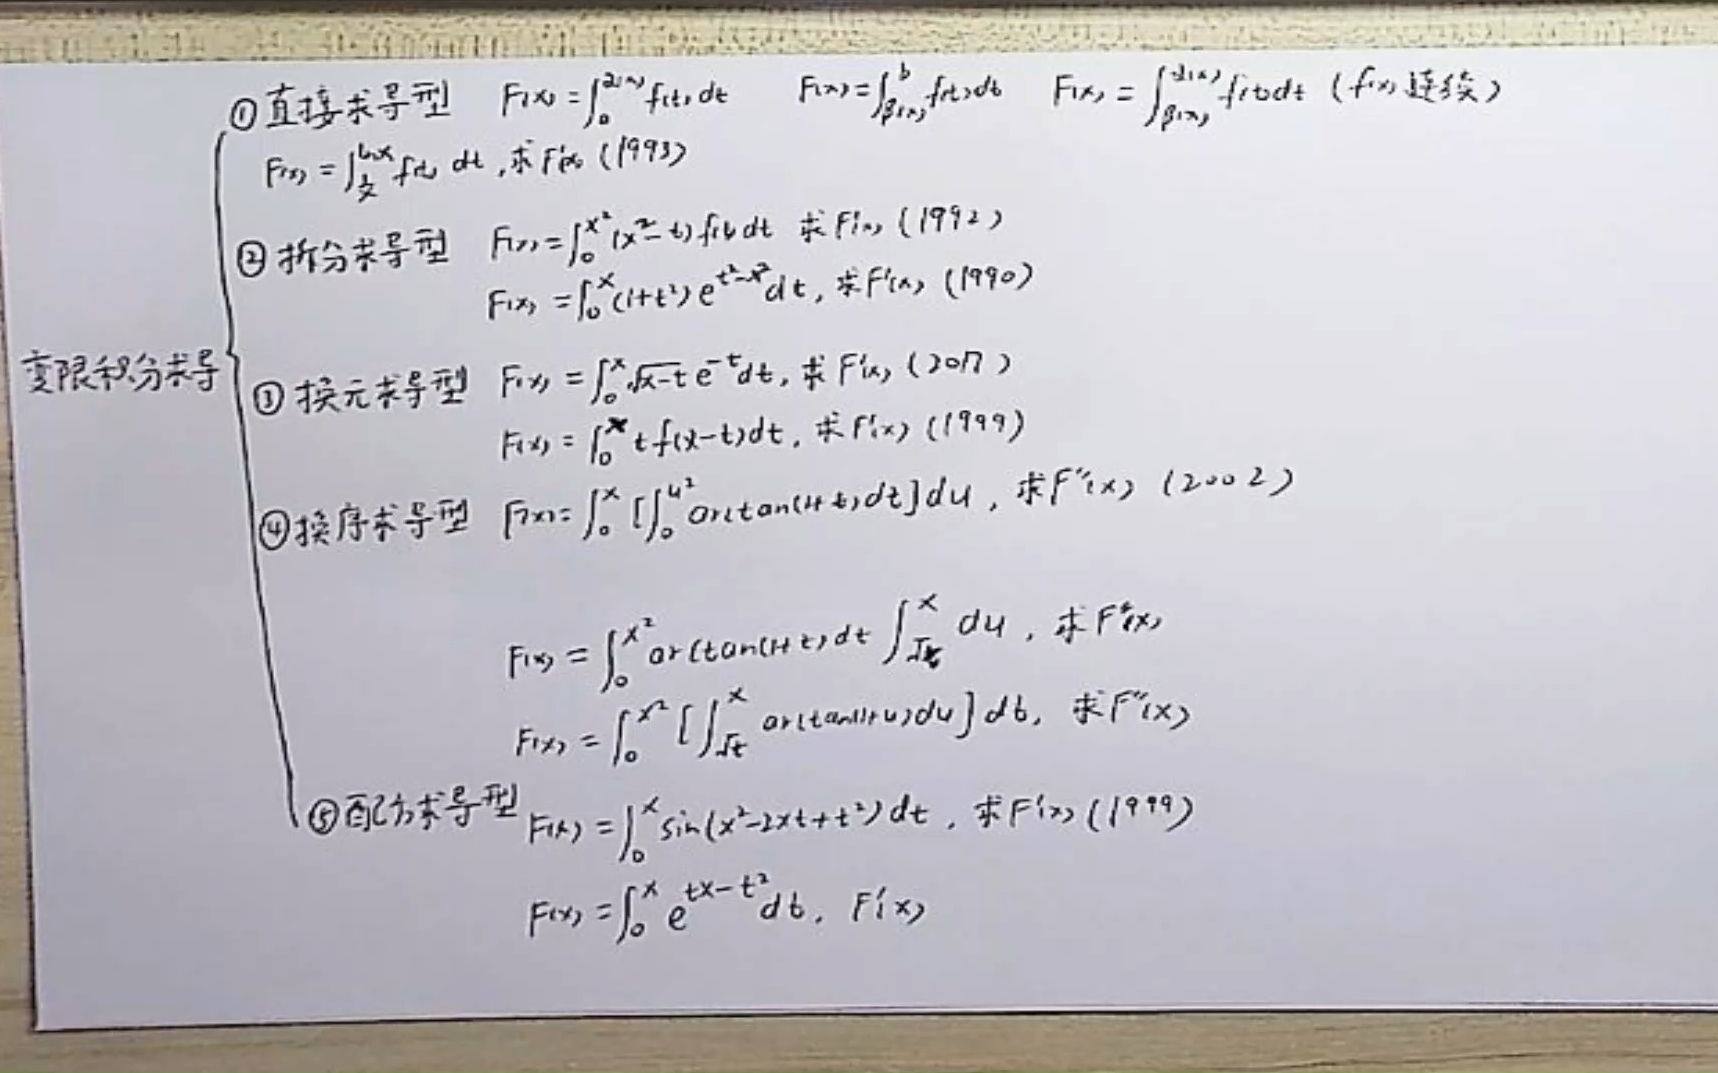 ①直接求导型 F(x)=∫₀^{α(x)} f(t)dt F(x)=∫_{β(x)}^{b} f(t)dt F(x)=∫_{β(x)}^{α(x)} f(t)dt (f(x)连续)
F(x)=∫_{1/x}^{lnx} f(t) dt,求F'(x) (1993)
②拆分求导型 F(x)=∫₀^{x²}(x²-t)f(t)dt 求F'(x) (1992)
F(x)=∫₀^{x}(1+t²)e^{t²-x²}dt,求F'(x) (1990)
变限积分求导
③换元求导型 F(x)=∫₀^{x}√(x-t) e^{-t}dt,求F'(x) (2017)
F(x)=∫₀^{x} t f(x-t)dt,求F'(x) (1999)
④换序求导型 F(x)=∫₀^{x}[∫₀^{u²}arctan(1+t)dt]du,求F''(x) (2002)
F(x)=∫₀^{x²}arctan(1+t)dt∫_{√t}^{x}du,求F''(x)
F(x)=∫₀^{x²}[∫_{√t}^{x}arctan(1+u)du]dt,求F''(x)
⑤配方求导型 F(x)=∫₀^{x}sin(x²-2xt+t²)dt,求F'(x) (1999)
F(x)=∫₀^{x}e^{tx-t²}dt,F'(x)